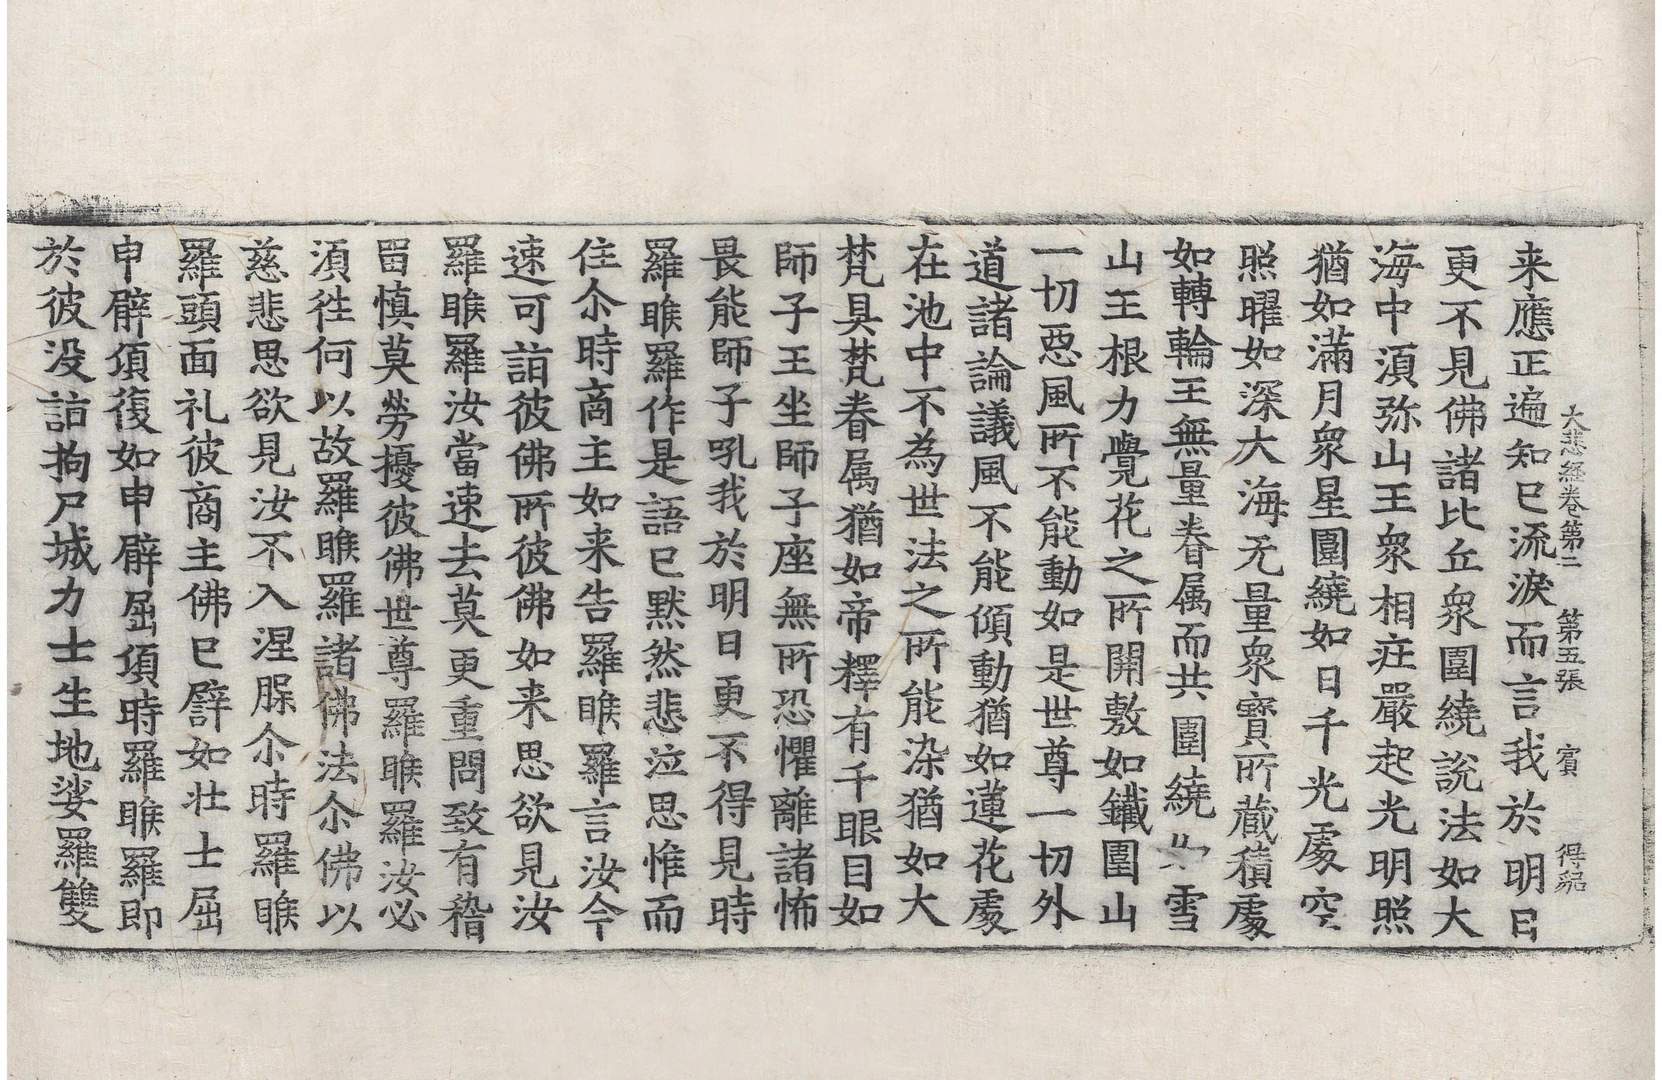 大悲經卷第二 第五張 賓 得紹
来應正遍知已流淚而言我於明日
更不見佛諸比丘衆圍繞說法如大
海中湏弥山王衆相莊嚴起光明照
猶如滿月衆星圍繞如日千光處空
照曜如深大海无量衆寶所藏積處
如轉輪王無量眷属而共圍繞如雪
山王根力覺花之所開敷如鐵圍山
一切惡風所不能動如是世尊一切外
道諸論議風不能傾動猶如蓮花處
在池中不為世法之所能染猶如大
梵具梵眷属猶如帝釋有千眼目如
師子王坐師子座無所恐懼離諸怖
畏能師子吼我於明日更不得見時
羅睺羅作是語已默然悲泣思惟而
住尒時商主如来告羅睺羅言汝今
速可詣彼佛所彼佛如来思欲見汝
羅睺羅汝當速去莫更重問致有稽
留慎莫勞擾彼佛世尊羅睺羅汝必
湏徃何以故羅睺羅諸佛法尒佛以
慈悲思欲見汝不入涅槃尒時羅睺
羅頭面礼彼商主佛已譬如壮士屈
申臂頃復如申臂屈頃時羅睺羅即
於彼没詣拘尸城力士生地娑羅雙